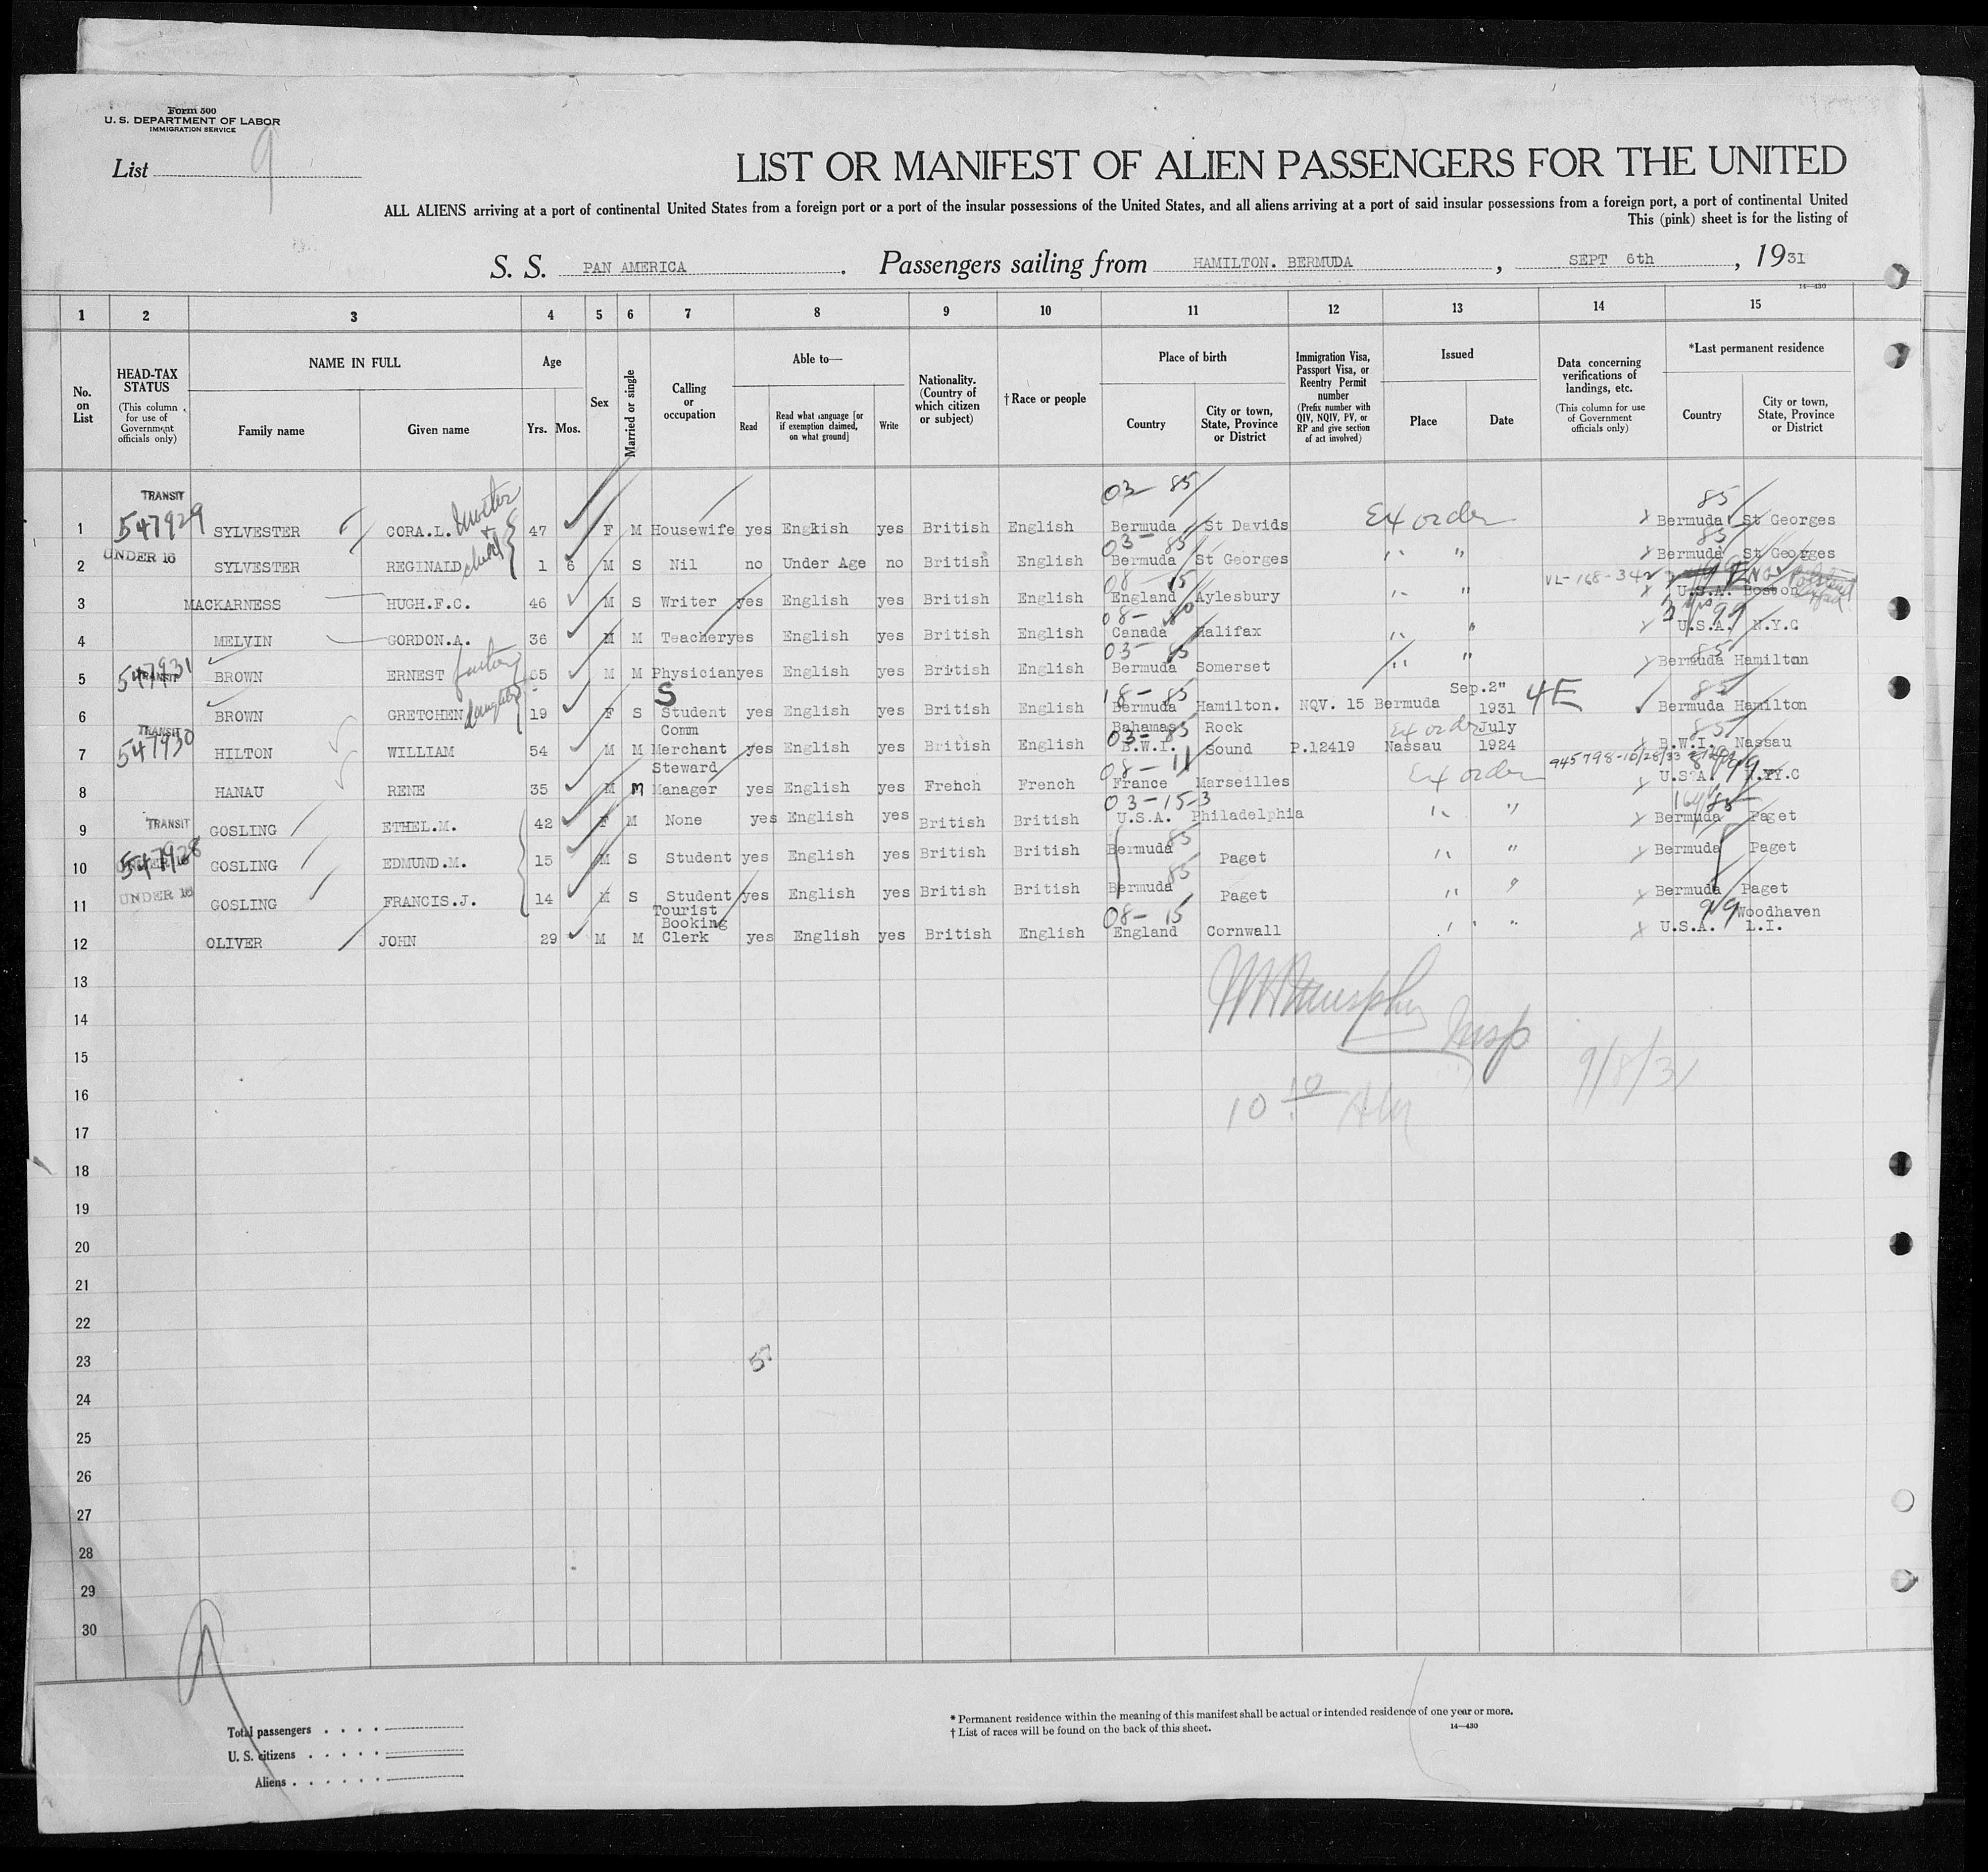 Form 500
U. S. DEPARTMENT OF LABOR
IMMIGRATION SERVICE
List 9
LIST OR MANIFEST OF ALIEN PASSENGERS FOR THE UNITED
ALL ALIENS arriving at a port of continental United States from a foreign port or a port of the insular possessions of the United States, and all aliens arriving at a port of said insular possessions from a foreign port, a port of continental United
This (pink) sheet is for the listing of
S. S. PAN AMERICA. Passengers sailing from HAMILTON. BERMUDA, SEPT 6th, 1931
14—430
1 2 3 4 5 6 7 8 9 10 11 12 13 14 15
No. on List
HEAD-TAX STATUS (This column for use of Government officials only)
NAME IN FULL
Family name Given name
Age
Yrs. Mos.
Sex
Married or single
Calling or occupation
Able to—
Read
Read what language [or if exemption claimed, on what ground]
Write
Nationality. (Country of which citizen or subject)
†Race or people
Place of birth
Country
City or town, State, Province or District
Immigration Visa, Passport Visa, or Reentry Permit number (Prefix number with QIV, NQIV, PV, or RP and give section of act involved)
Issued
Place Date
Data concerning verifications of landings, etc. (This column for use of Government officials only)
*Last permanent residence
Country
City or town, State, Province or District
TRANSIT 03-85 85
1 547929 SYLVESTER CORA.L. 47 F M Housewife yes English yes British English Bermuda St Davids Ex order x Bermuda St Georges
UNDER 16 03- 85 85
2 SYLVESTER REGINALD child 1 6 M S Nil no Under Age no British English Bermuda St Georges " " x Bermuda St Georges
08-15 VL-168-342
3 MACKARNESS HUGH.F.C. 46 M S Writer yes English yes British English England Aylesbury " " x U.S.A. Boston
08- 80 99
4 MELVIN GORDON.A. 36 M M Teacher yes English yes British English Canada Halifax " " x U.S.A. N.Y.C
03- 85 85
5 547931 TRANSIT BROWN ERNEST 65 M M Physician yes English yes British English Bermuda Somerset " " x Bermuda Hamilton
S 18-85 Sep.2" 4E 85
6 BROWN GRETCHEN daughter 19 F S Student yes English yes British English Bermuda Hamilton. NQV. 15 Bermuda 1931 Bermuda Hamilton
TRANSIT Comm Bahamas Rock Ex order July 85
7 547930 HILTON WILLIAM 54 M M Merchant yes English yes British English 03-85 B.W.I. Sound P.12419 Nassau 1924 x B.W.I. Nassau
Steward 08-11 945798-10/28/33
8 HANAU RENE 35 M M Manager yes English yes French French France Marseilles Ex order x U.S.A. N.Y.C
TRANSIT 03-15-3 85
9 GOSLING ETHEL.M. 42 F M None yes English yes British British U.S.A. Philadelphia " " x Bermuda Paget
85
10 547928 UNDER 16 GOSLING EDMUND.M. 15 M S Student yes English yes British British Bermuda Paget " " x Bermuda Paget
UNDER 16 85
11 GOSLING FRANCIS.J. 14 M S Student yes English yes British British Bermuda Paget " " x Bermuda Paget
Tourist Booking 08-15 99 Woodhaven
12 OLIVER JOHN 29 M M Clerk yes English yes British English England Cornwall " " x U.S.A. L.I.
13
14 Murphy Insp
15 9/8/31
16 10 10 AM
17
18
19
20
21
22
23 5
24
25
26
27
28
29
30
9
Total passengers
U. S. citizens
Aliens
* Permanent residence within the meaning of this manifest shall be actual or intended residence of one year or more.
† List of races will be found on the back of this sheet.
14—430